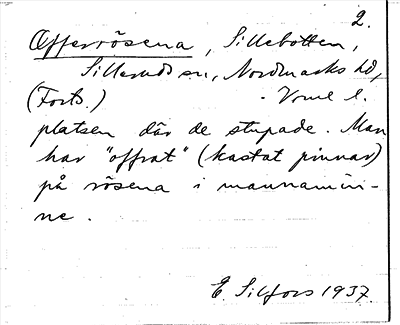 2.
Offerrösena, Sillebotten,
Sillerud sn., Nordmarks hd,
(Forts.) Vrml l.
platsen där de stupade. Man
har "offrat" (kastat pinnar)
på rösena i mannamin-
ne.
E. Silfors 1937.